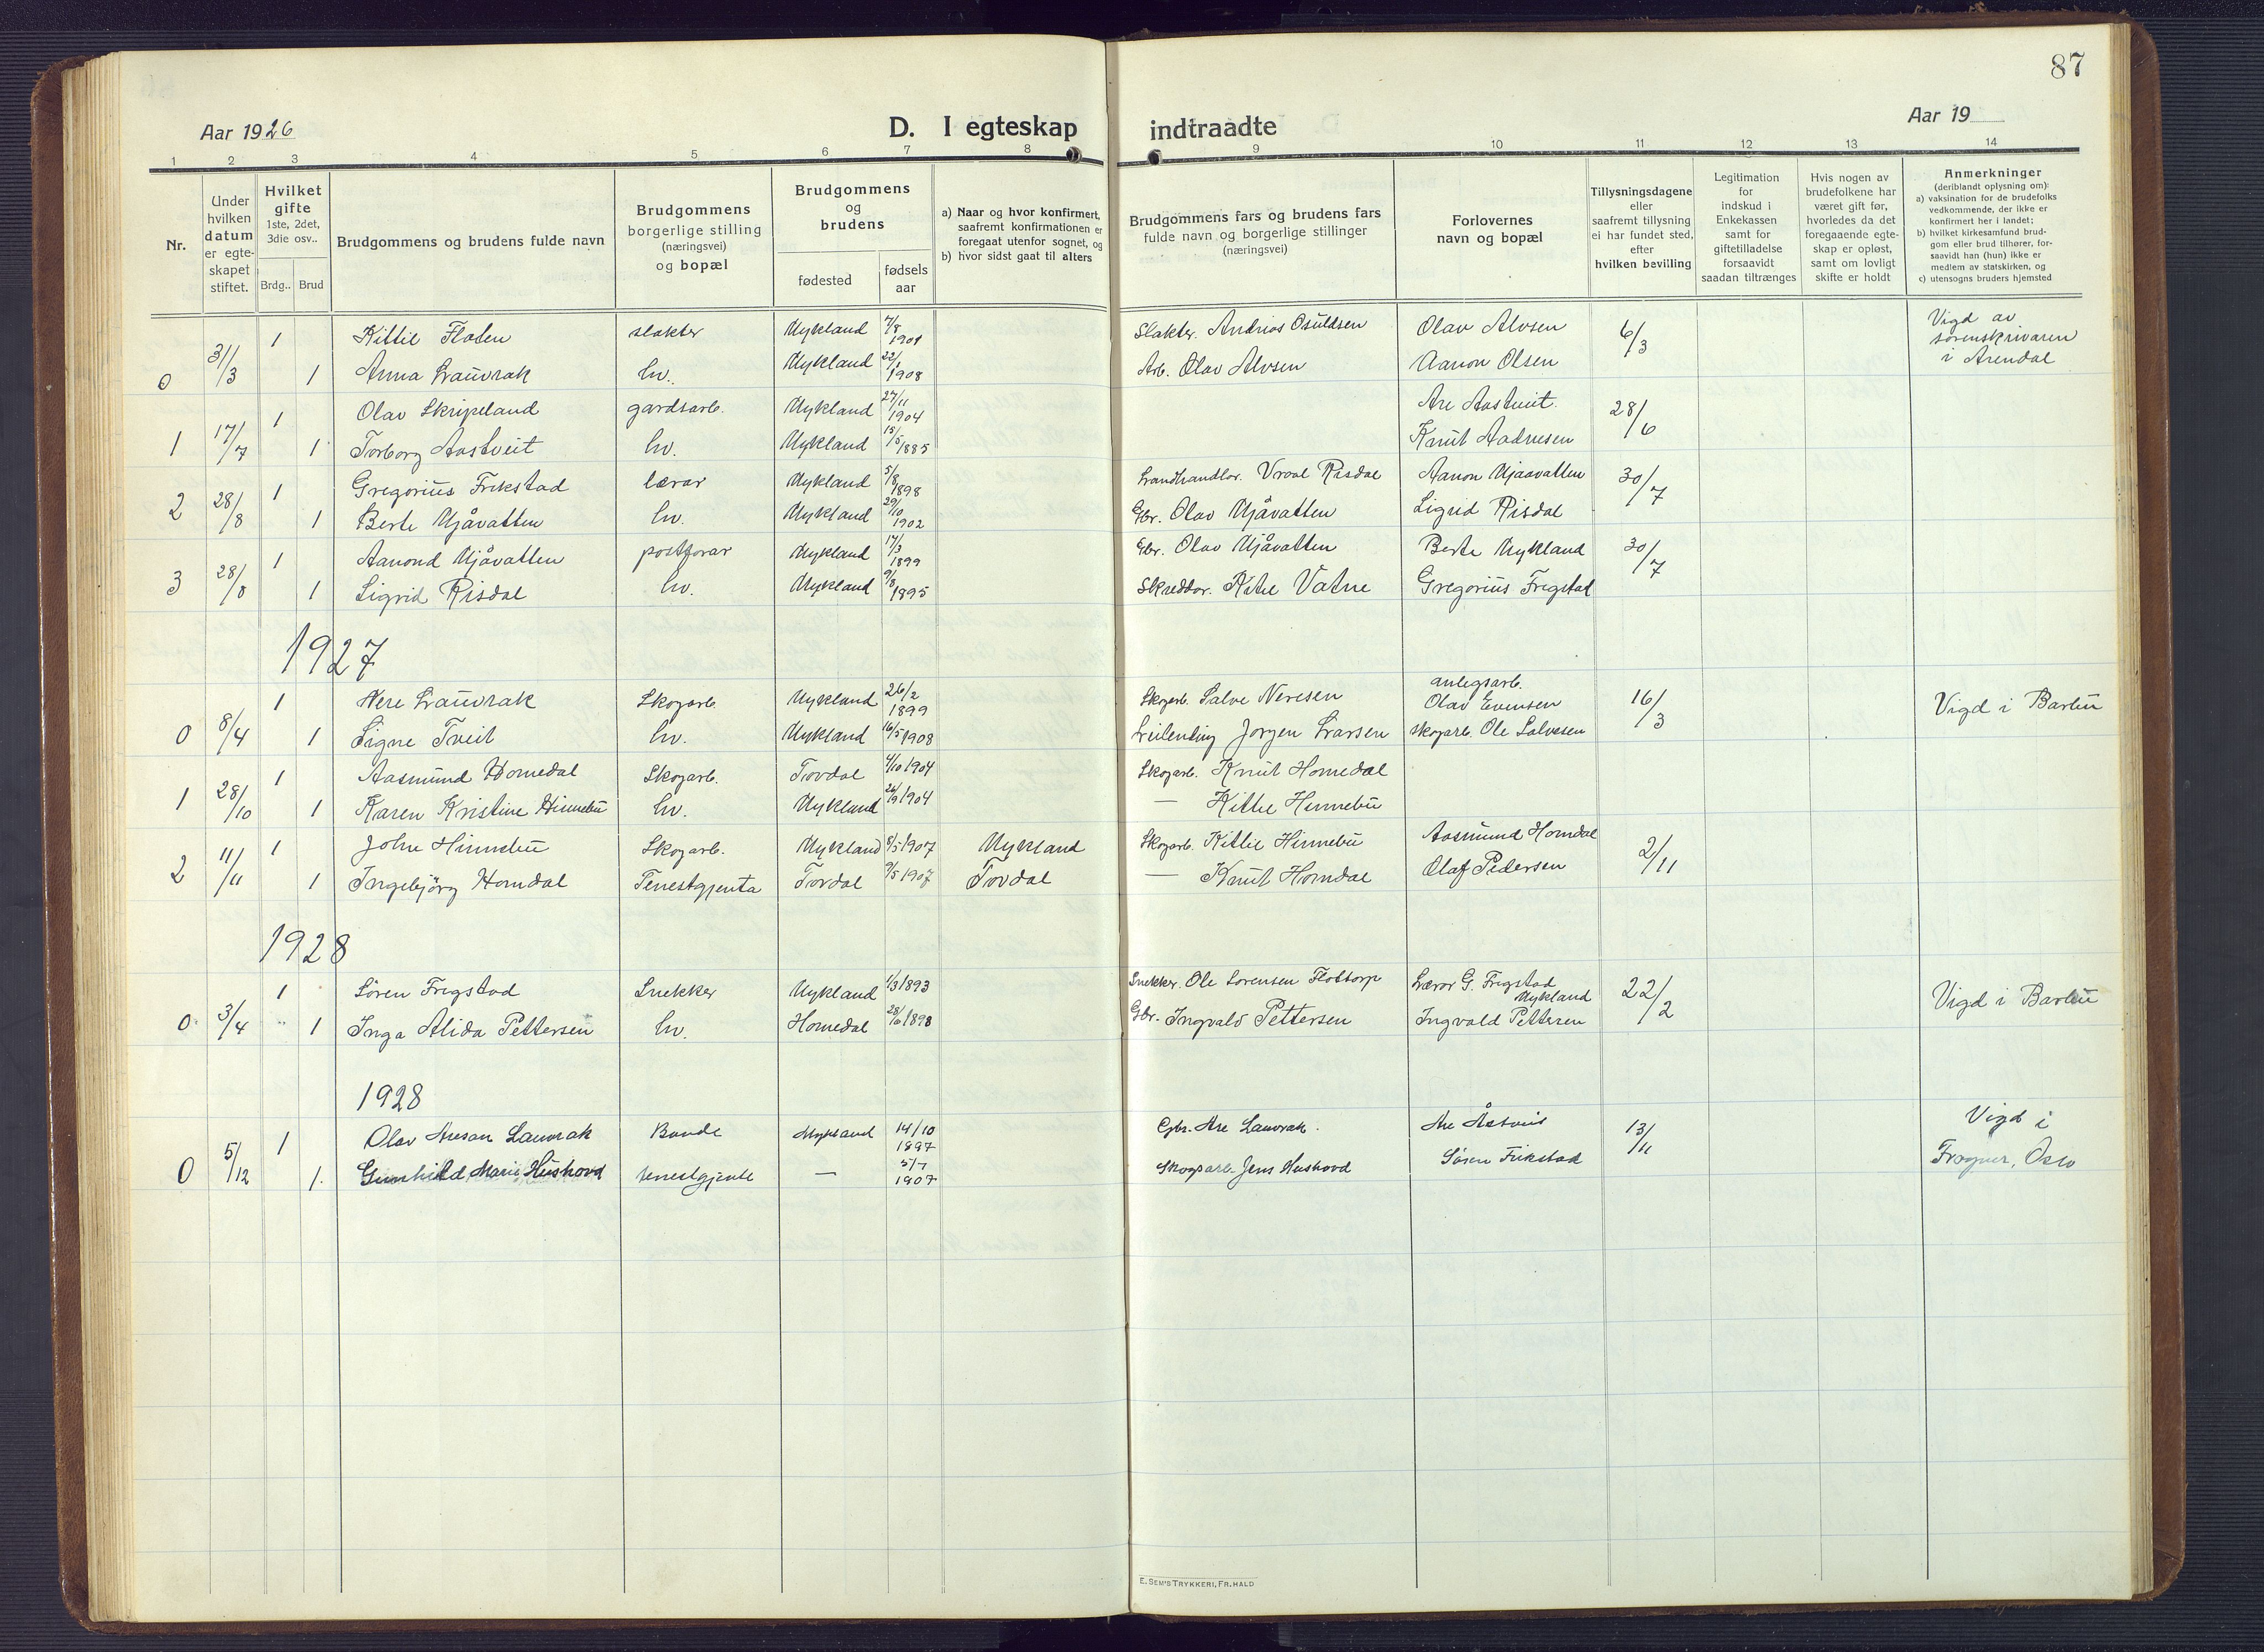 87
Aar 1926
D. I egteskap indtraadte
Aar 19
1 2 3 4 5 6 7 8 9 10 11 12 13 14
Nr.
Under
hvilken
datum
er egte-
skapet
stiftet.
Hvilket
gifte
1ste, 2det,
3die osv..
Brdg.. Brud
Brudgommens og brudens fulde navn
Brudgommens
borgerlige stilling
(næringsvei)
og bopæl
Brudgommens
og
brudens
fødested
fødsels
aar
a) Naar og hvor konfirmert,
saafremt konfirmationen er
foregaat utenfor sognet, og
b) hvor sidst gaat til alters
Brudgommens fars og brudens fars
fulde navn og borgerlige stillinger
(næringsvei)
Forlovernes
navn og bopæl
Tillysningsdagene
eller
saafremt tillysning
ei har fundet sted,
efter
hvilken bevilling
Legitimation
for
indskud i
Enkekassen
samt for
giftetilladelse
forsaavidt
saadan tiltrænges
Hvis nogen av
brudefolkene har
været gift før,
hvorledes da det
foregaaende egte-
skap er opløst,
samt om lovligt
skifte er holdt
Anmerkninger
(deriblandt oplysning om):
a) vaksination for de brudefolks
vedkommende, der ikke er
konfirmert her i landet;
b) hvilket kirkesamfund brud-
gom eller brud tilhører, for-
saavidt han (hun) ikke er
medlem av statskirken, og
c) utensogns bruders hjemsted
1 Kittil Flaten slakter Mykland 7/8 1901 Slakter. Andrias Osuldsen Olav Alvsen 6/3 Vigd av
sorenskrivaren
i Arendal
0 31/3 1 Anna Lauvrak hv. Mykland 22/2 1908 Arb. Olav Alvsen Aanon Olsen
1 Olav Skripeland gardsarb. Mykland 27/11 1904 Are Aastveit. 28/6
1 17/7 1 Torborg Aastveit hv. Mykland 15/5 1885 Knut Aadnesen
1 Gregorius Frikstad lærar Mykland 5/8 1898 Landhandlar. Vraal Risdal Aanon Mjaavatten 30/7
2 28/8 1 Berte Mjåvatten hv. Mykland 29/10 1902 Gbr. Olav Mjåvatten Sigrid Risdal
1 Aanond Mjåvatten postførar Mykland 17/3 1899 Gbr. Olav Mjåvatten Berte Mykland 30/7
3 28/8 1 Sigrid Risdal hv. Mykland 9/8 1895 Skreddar. Kitel Vatne Gregorius Frigstad
1927
1 Nere Lauvrak Skogarb. Mykland 26/2 1899 Skogarb. Salve Neresen anlegsarb.
Olav Evensen 16/3 Vigd i Barbu
0 8/4 1 Signe Tveit hv. Mykland 16/5 1908 Leilending Jorgen Larsen skogarb. Ole Salvesen
1 Aasmund Homedal Skogarb. Tovdal 4/10 1904 Skogarb. Knut Homedal
1 28/10 1 Karen Kristine Hinnebu hv. Mykland 26/9 1904 — Kittil Hinnebu
1 John Hinnebu Skogarb. Mykland 8/5 1907 Mykland Skogarb. Kittil Hinnebu Aasmund Homdal 2/11
2 11/11 1 Ingebjörg Homdal Tenestgjenta Tovdal 9/5 1907 Tovdal — Knut Homdal Olaf Pedersen
1928
1 Sören Frigstad Snekker Mykland 1/3 1893 Snekker. Ole Sorensen Flottorp Lærar G. Frigstad
Mykland 22/2 Vigd i Barbu
0 3/4 1 Inga Alida Pettersen hv. Homedal 28/6 1898 Gbr. Ingvald Pettersen Ingvald Petteren
1928
1 Olav Aresan Lauvrak Bonde Mykland 14/10 1897 Gbr. Are Lauvrak. Are Åstveit 13/11 Vigd i
0 5/12 1. Gunhild Marie Hushovd tenestgjente — 5/7 1907 Skogsarb. Jens Hushovd Sören Frikstad Frogner, Oslo
E. SEM'S TRYKKERI, FR.HALD